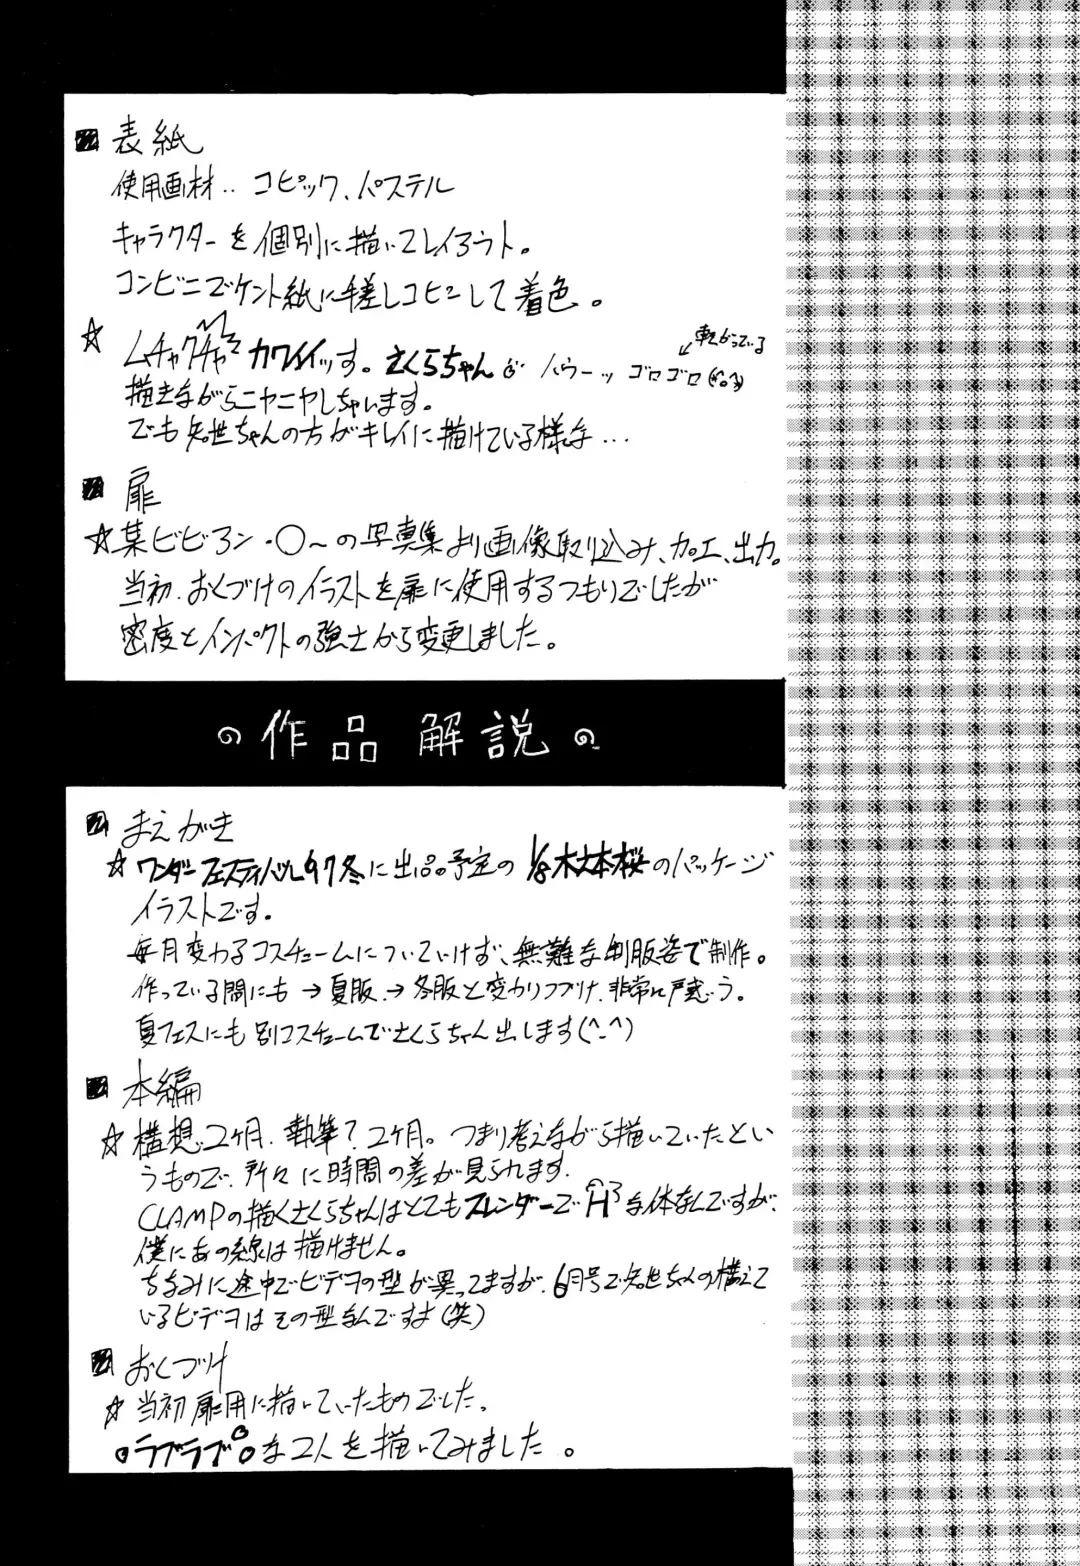 表紙
使用画材‥コピック、パステル
キャラクターを個別に描いてレイアウト。
コンビニでケント紙に手差しコピーして着色。
☆ムチャクチャカワイイッす。さくらちゃんが ハウーッ ゴロゴロ(^o^)
転がっている
描きながらニヤニヤしちゃいます。
でも知世ちゃんの方がキレイに描けている様な…
扉
☆某ビビアン・○〜の写真集より画像取り込み、加工、出力。
当初、おくづけのイラストを扉に使用するつもりでしたが
密度とインパクトの強さから変更しました。
作品解説
まえがき
☆ワンダーフェスティバル97冬に出品予定の1/8木之本桜のパッケージ
イラストです。
毎月変わるコスチュームについていけず、無難な制服姿で制作。
作っている間にも→夏服→冬服と変わりつづけ、非常に戸惑う。
夏フェスにも別コスチュームでさくらちゃん出します(^-^)
本編
☆構想‥2ヶ月、執筆?2ヶ月。つまり考えながら描いていたとい
うもので、所々に時間の差が見られます。
CLAMPの描くさくらちゃんはとてもスレンダーでHな体なんですが、
僕にあの線は描けません。
ちなみに途中でビデオの型が異ってますが、6月号で知世ちゃんの構えて
いるビデオはその型なんですよ(笑)
おくづけ
☆当初扉用に描いていたものでした。
ラブラブな2人を描いてみました。